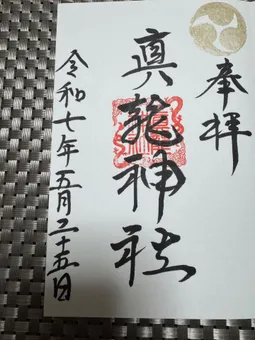 奉拝
真龍神社
令和七年五月二十五日